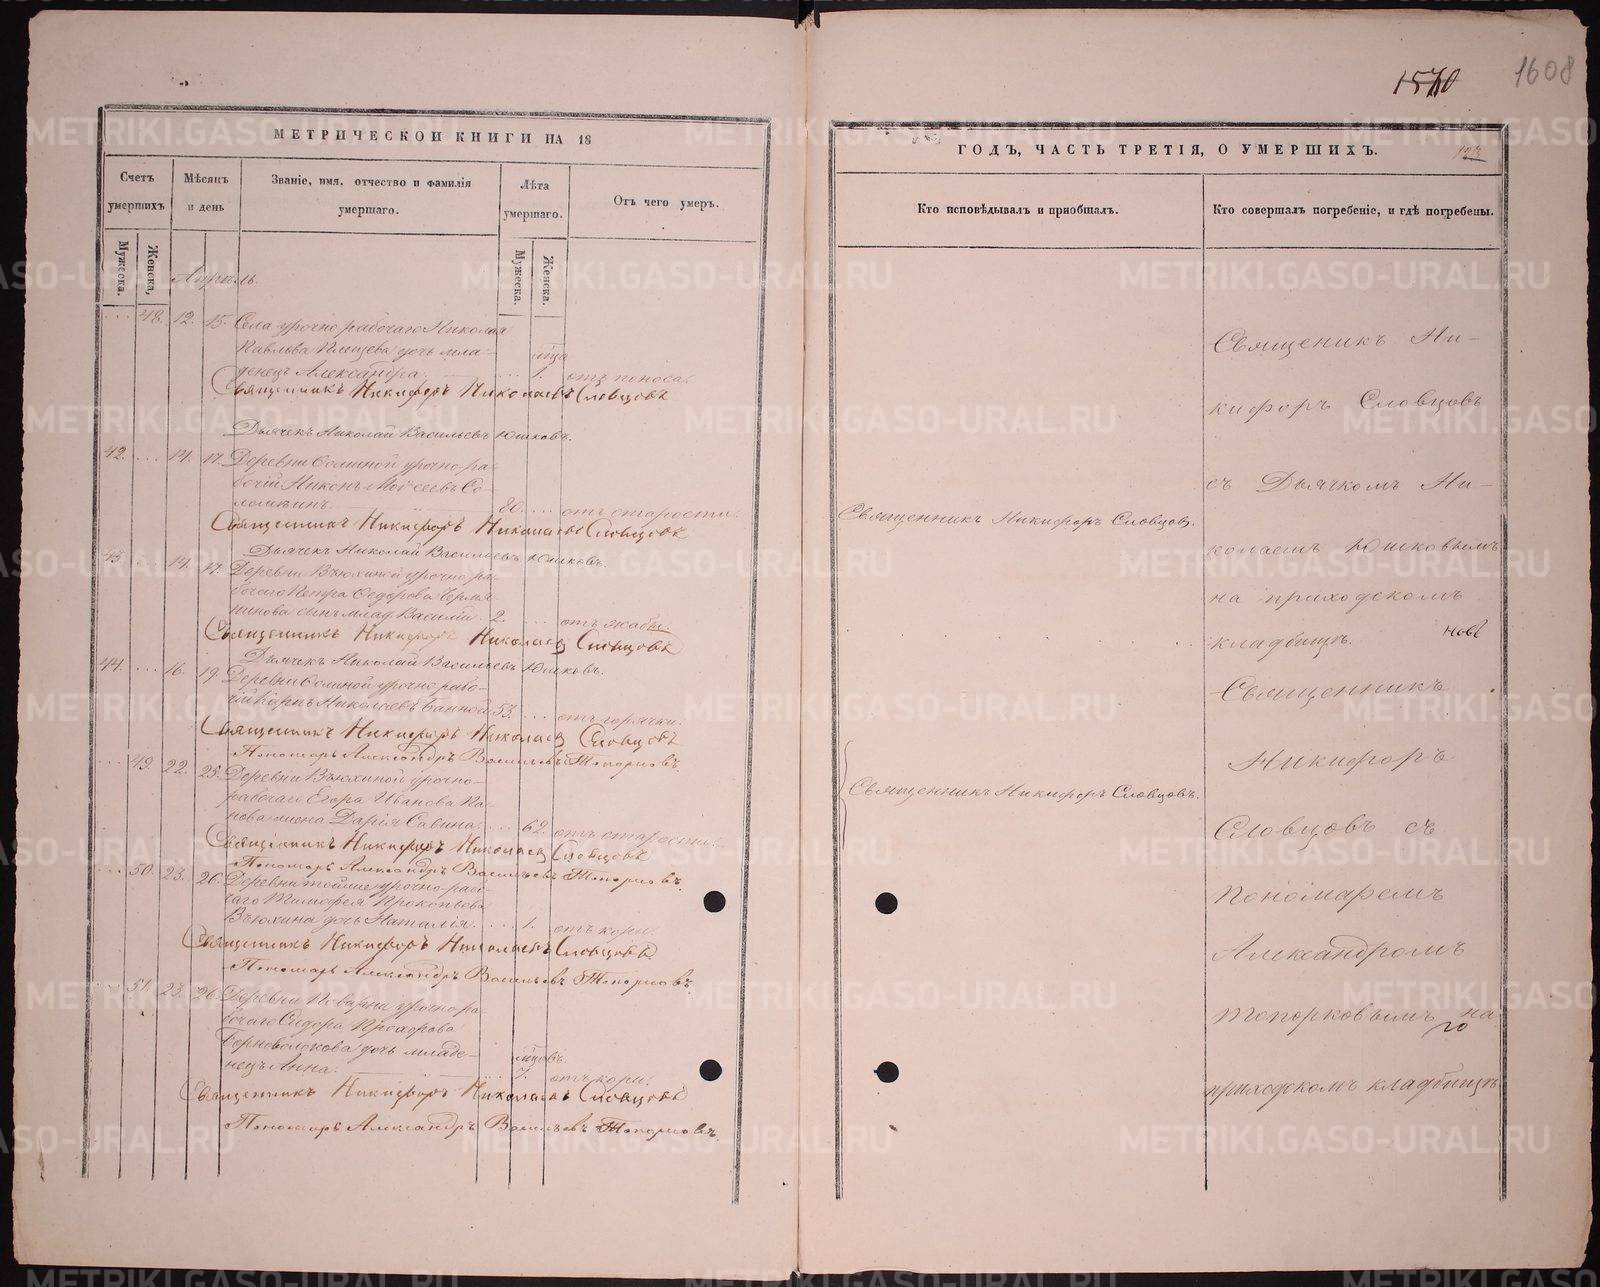 1570
1608
МЕТРИЧЕСКОЙ КНИГИ НА 18
Счетъ умершихъ
Мужеска.
Женска,
Мѣсяцъ и день
Званіе, имя, отчество и фамилія умершаго.
Лѣта умершаго.
Мужеска.
Женска.
Отъ чего умеръ.
Апрѣль
48. 12. 15. Села урочно рабочаго Николая
Павлова дочь мла-
денецъ Александра. 1. отъ поноса.
Священникъ Никифоръ Николаевъ Словцовъ
Дьячекъ Николай Васильевъ Юшковъ.
42. 14. 17. Деревни урочно ра-
бочій Никонъ Моѵсеевъ Со-
80. отъ старости.
Священникъ Никифоръ Николаевъ Словцовъ
Дьячекъ Николай Васильевъ Юшковъ.
43. 14. 17. Деревни Вьюхиной урочно ра-
бочаго Петра Ѳедорова
сынъ млад. Василій 2. отъ жабы.
Священникъ Никифоръ Николаевъ Словцовъ
Дьячекъ Николай Васильевъ Юшковъ.
44. 16. 19. Деревни урочно рабо-
чій Карпъ Николаевъ 53. отъ горячки.
Священникъ Никифоръ Николаевъ Словцовъ
Пономарь Александръ Васильевъ Топорковъ.
49. 22. 25. Деревни Вьюхиной урочно-
рабочаго Егора Иванова Па-
нова жена Дарія Савина. 62. отъ старости.
Священникъ Никифоръ Николаевъ Словцовъ
Пономарь Александръ Васильевъ Топорковъ.
50. 23. 26. Деревни тойже урочно-рабо-
чаго Тимофея Прокопьева
Вьюхина дочь Наталія. 1. отъ кори.
Священникъ Никифоръ Николаевъ Словцовъ
Пономарь Александръ Васильевъ Топорковъ.
51. 23. 26. Деревни урочно ра-
бочаго Сидора Прохорова
дочь младе-
нецъ Анна. отъ кори.
Священникъ Никифоръ Николаевъ Словцовъ
Пономарь Александръ Васильевъ Топорковъ.
ГОДЪ, ЧАСТЬ ТРЕТІЯ, О УМЕРШИХЪ.
Кто исповѣдывалъ и пріобщалъ.
Кто совершалъ погребеніе, и гдѣ погребены.
Священникъ Никифоръ Словцовъ.
Священникъ Никифоръ Словцовъ.
Священикъ Ни-
кифоръ Словцовъ
съ Дьячкомъ Ни-
колаемъ Юшковымъ
на приходскомъ
кладбищѣ.
Священникъ
Никифоръ
Словцовъ съ
Пономаремъ
Александромъ
Топорковымъ на
приходскомъ кладбищѣ
METRIKI.GASO-URAL.RU